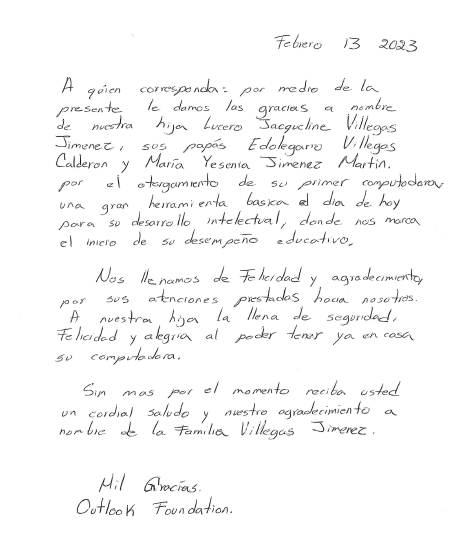 Febrero 13 2023
A quien corresponda: por medio de la
presente le damos las gracias a nombre
de nuestra hija Lucero Jacqueline Villegas
Jimenez, sus papás Edolegario Villegas
Calderon y María Yesenia Jimenez Martin.
por el otorgamiento de su primer computadora
una gran herramienta basica el dia de hoy
para su desarrollo intelectual, donde nos marca
el inicio de su desempeño educativo.
Nos llenamos de Felicidad y agradecimiento,
por sus atenciones prestadas hacia nosotros.
A nuestra hija la llena de seguridad,
Felicidad y alegria al poder tener ya en casa
su computadora.
Sin mas por el momento reciba usted
un cordial saludo y nuestro agradecimiento a
nombre de la Familia Villegas Jimenez.
Mil Gracias.
Outlook Foundation.